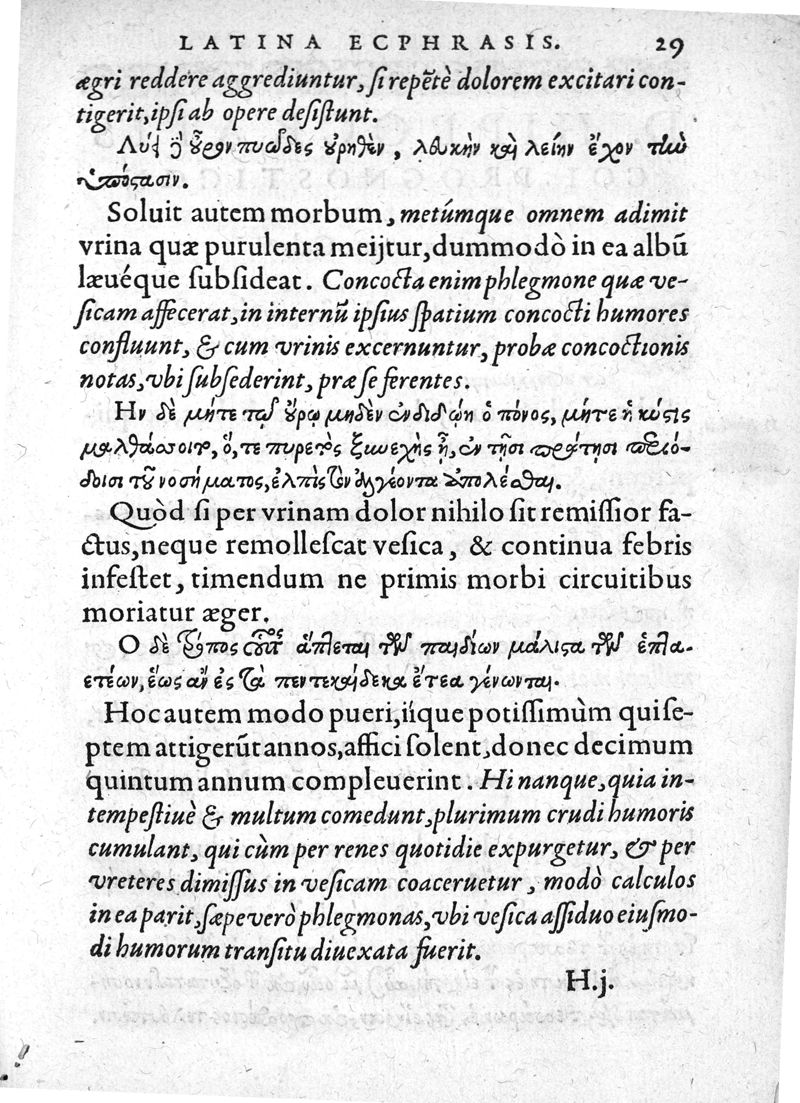 LATINA ECPHRASIS. 29
ægri reddere aggrediuntur, ſi repẽtè dolorem excitari con-
tigerit, ipſi ab opere deſiſtunt.
Λύει δὲ οὖρον πυῶδες οὐρηθὲν, λευκὴν καὶ λείην ἔχον τὴν
ὑπόστασιν.
Soluit autem morbum, metúmque omnem adimit
vrina quæ purulenta meijtur, dummodò in ea albũ
læuéque ſubſideat. Concocta enim phlegmone quæ ve-
ſicam affecerat, in internũ ipſius ſpatium concocti humores
confluunt, & cum vrinis excernuntur, probæ concoctionis
notas, vbi ſubſederint, præ ſe ferentes.
Ην δὲ μήτε τῷ οὔρῳ μηδὲν ἐνδιδῴη ὁ πόνος, μήτε ἡ κύστις
μαλθάσσοιτο, ὅ, τε πυρετὸς ξυνεχὴς ᾖ, ἐν τῇσι πρώτῃσι περιό-
δοισι τοῦ νοσήματος, ἐλπὶς τὸν ἀλγέοντα ἀπολέσθαι.
Quòd ſi per vrinam dolor nihilo ſit remiſſior fa-
ctus, neque remolleſcat veſica, & continua febris
infeſtet, timendum ne primis morbi circuitibus
moriatur æger.
Ο δὲ τρόπος οὗτος ἅπτεται τῶν παιδίων μάλιστα τῶν ἑπτα-
ετέων, ἕως ἂν ἐς τὰ πεντεκαίδεκα ἔτεα γένωνται.
Hoc autem modo pueri, iique potiſſimùm qui ſe-
ptem attigerũt annos, affici ſolent, donec decimum
quintum annum compleuerint. Hi nanque, quia in-
tempeſtiuè & multum comedunt, plurimum crudi humoris
cumulant, qui cùm per renes quotidie expurgetur, & per
vreteres dimiſſus in veſicam coaceruetur, modò calculos
in ea parit, ſæpe verò phlegmonas, vbi veſica aſſiduo eiuſmo-
di humorum tranſitu diuexata fuerit.
H.j.